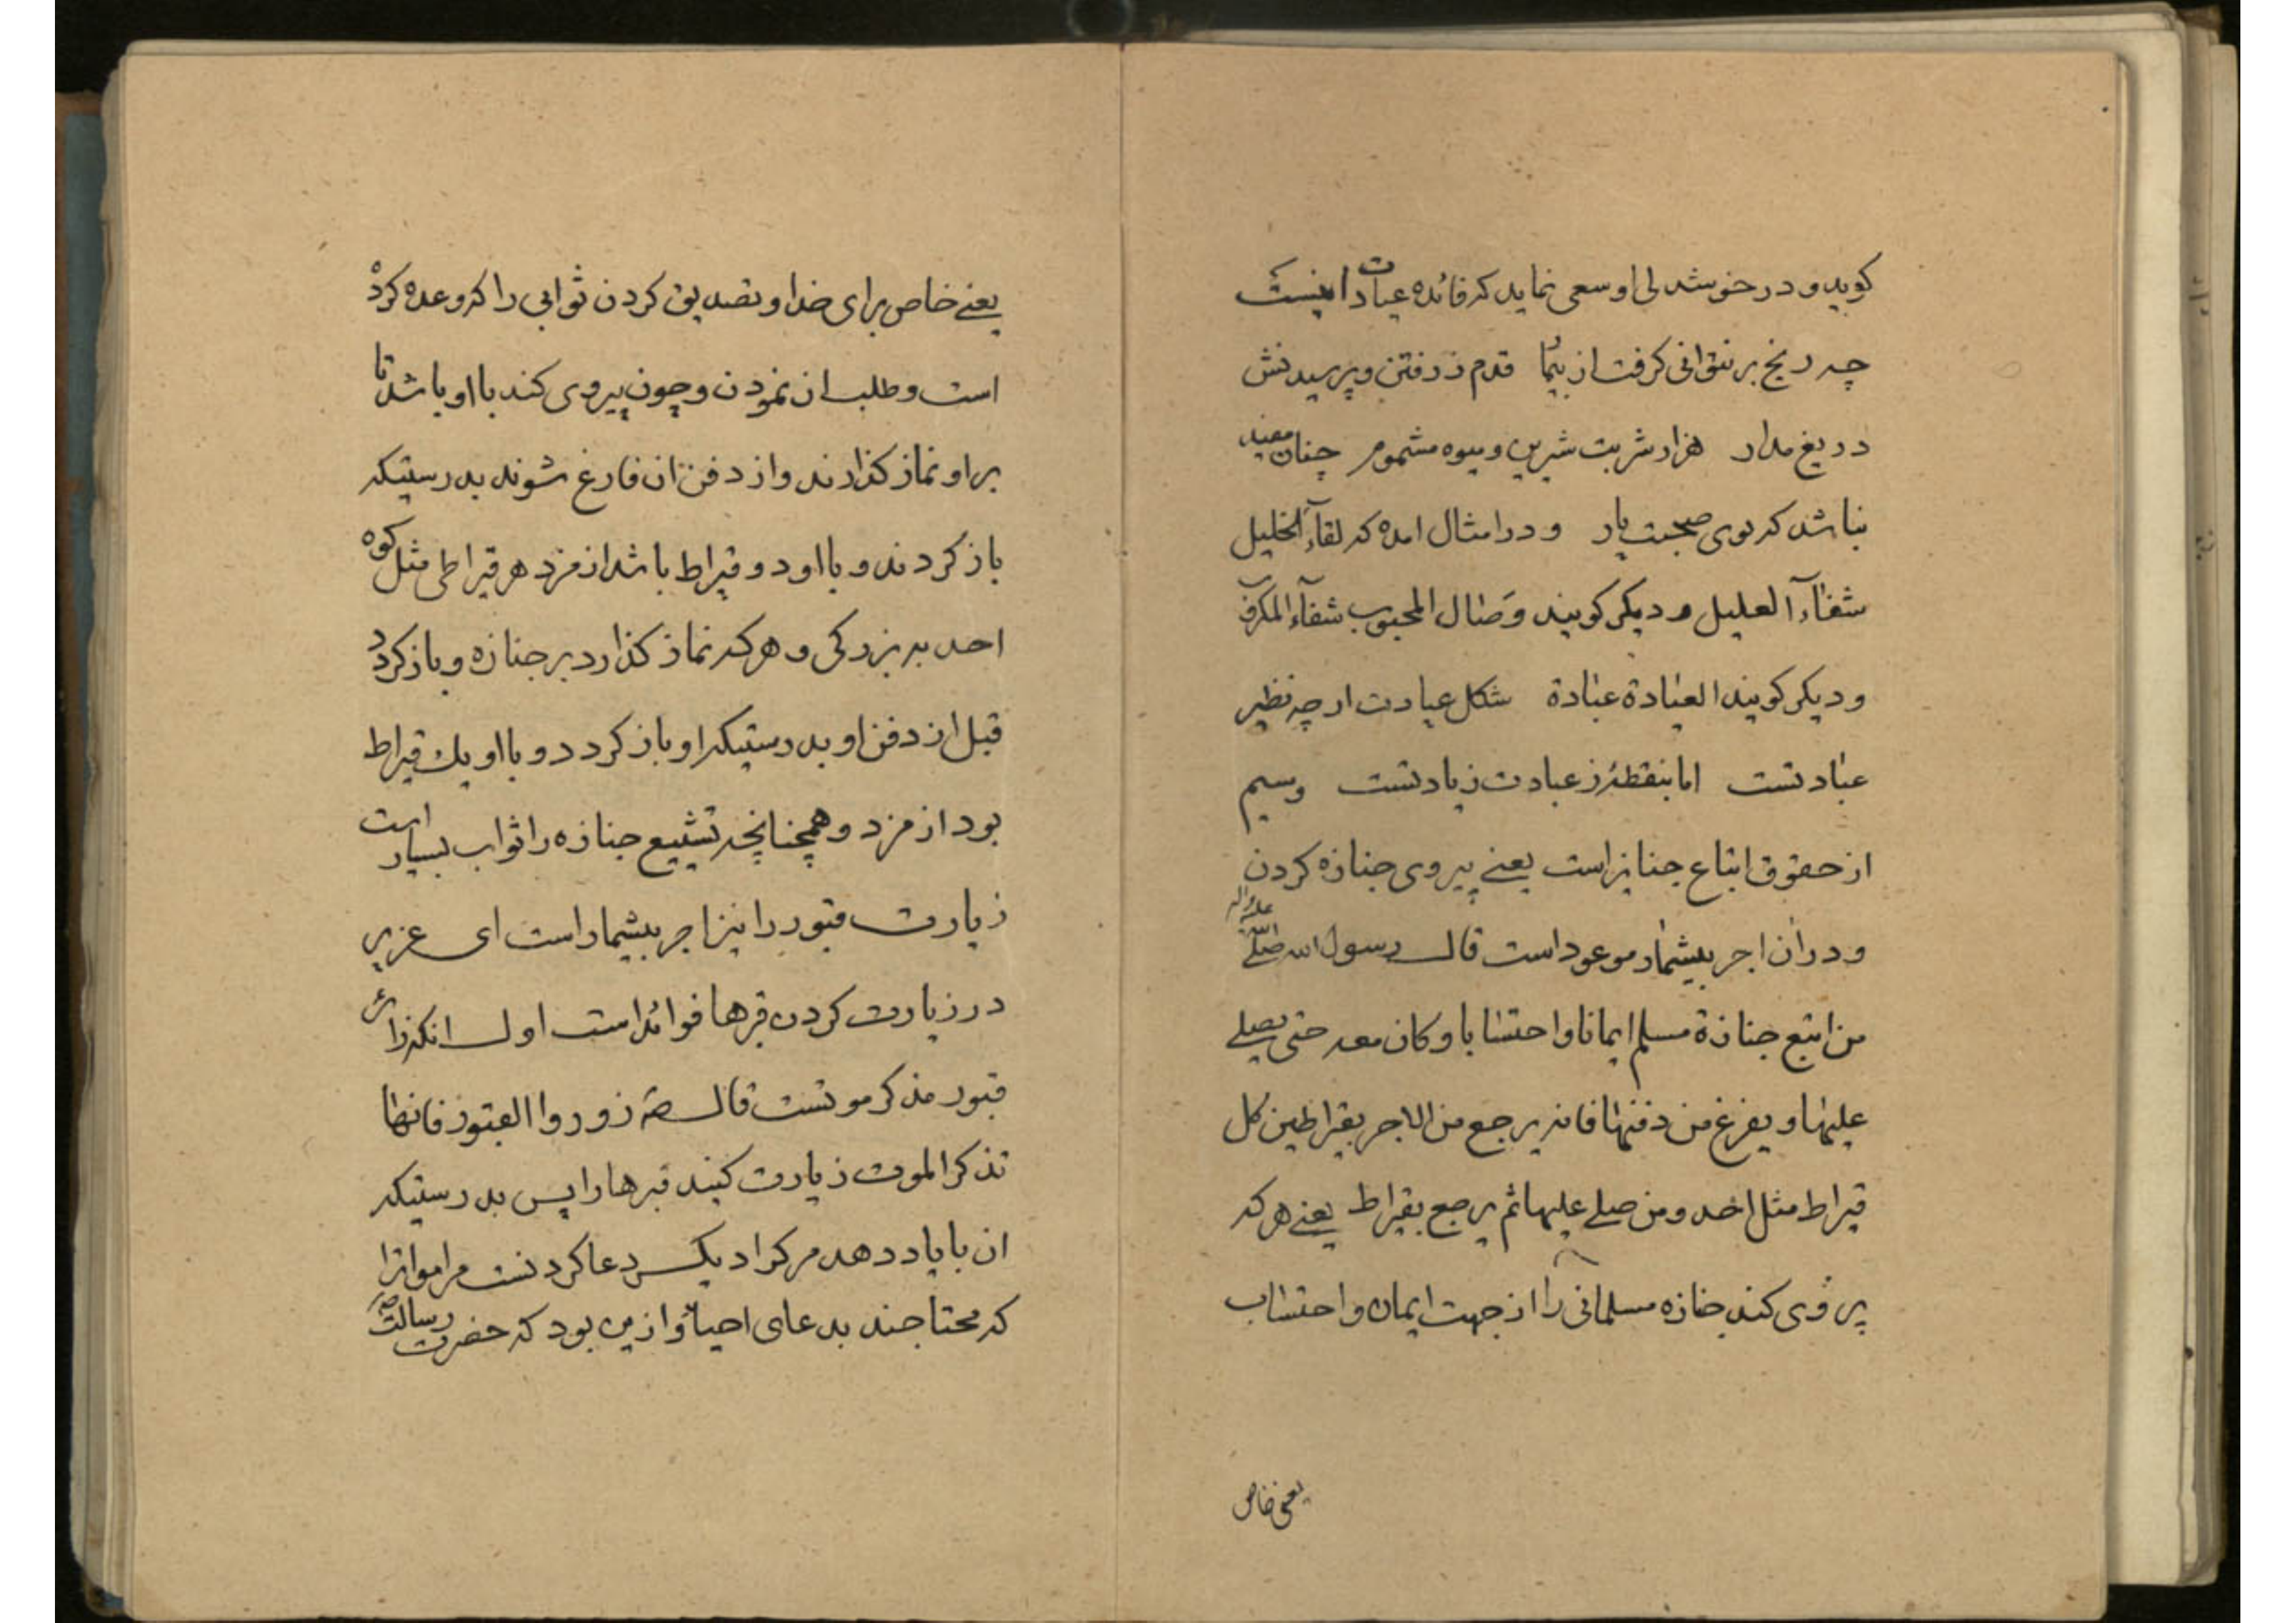 کوید و در خوشدلی او سعی نماید که فائده عیادت اینست
چه رنج بر نتوانی کرفت از بیمار قدم ز رفتن و پرسیدنش
دریغ مدار هزار شربت شیرین و میوه مشموم چنان مفید
نباشد که بوی صحبت یار و در امثال امده که لقآء الخلیل
شفآء العلیل و دیکر کویند وصال المحبوب شفآء المکروب
و دیکر کویند العیادة عبادة شکل عیادت ارچه نظیر
عبادتست اما بنقطۀ ز عبادت زیادتست وسیم
از حقوق اتباع جنایز است یعنے پیروی جنازه کردن
و دران اجر بیشمار موعود است قال رسول الله صلی الله علیه واله
من اتبع جنازة مسلم ایمانا واحتسابا وکان معه حتی یصلے
علیها ویفرغ من دفنها فانه یرجع من الاجر بقیراطین کل
قیراط مثل احد ومن صلے علیها ثم یرجع بقیراط یعنے هرکه
پیروی کند جنازه مسلمانی را از جهت ایمان و احتساب
یعنی خاص
یعنے خاص برای خدا و تصدیق کردن ثوابی را که وعده کرده
است و طلب ان نمودن و چون پیروی کند با او باشد تا
بر او نماز کذارند و از دفن ان فارغ شوند بدرستیکه
باز کردند و با او دو قیراط باشد از مزد هر قیراطی مثل کوه
احد به بزرکی و هرکه نماز کذارد بر جنازه و باز کردد
قبل از دفن او بدرستیکه او باز کردد و با او یك قیراط
بود از مزد و همچنانچه تشییع جنازه را ثواب بسیار است
زیارت قبور را نیز اجر بیشمار است ای عزیز
در زیارت کردن قبرها فوائد است اول انکه زائر
قبور مذکر موتست قال صۀ زوروا القبور فانها
تذکر الموت زیارت کنید قبرها را پس بدرستیکه
ان با یاد دهد مرکرا دیکر دعا کردنست مر امواترا
که محتاجند بدعای احیاء و ازین بود که حضرت رسالت ص